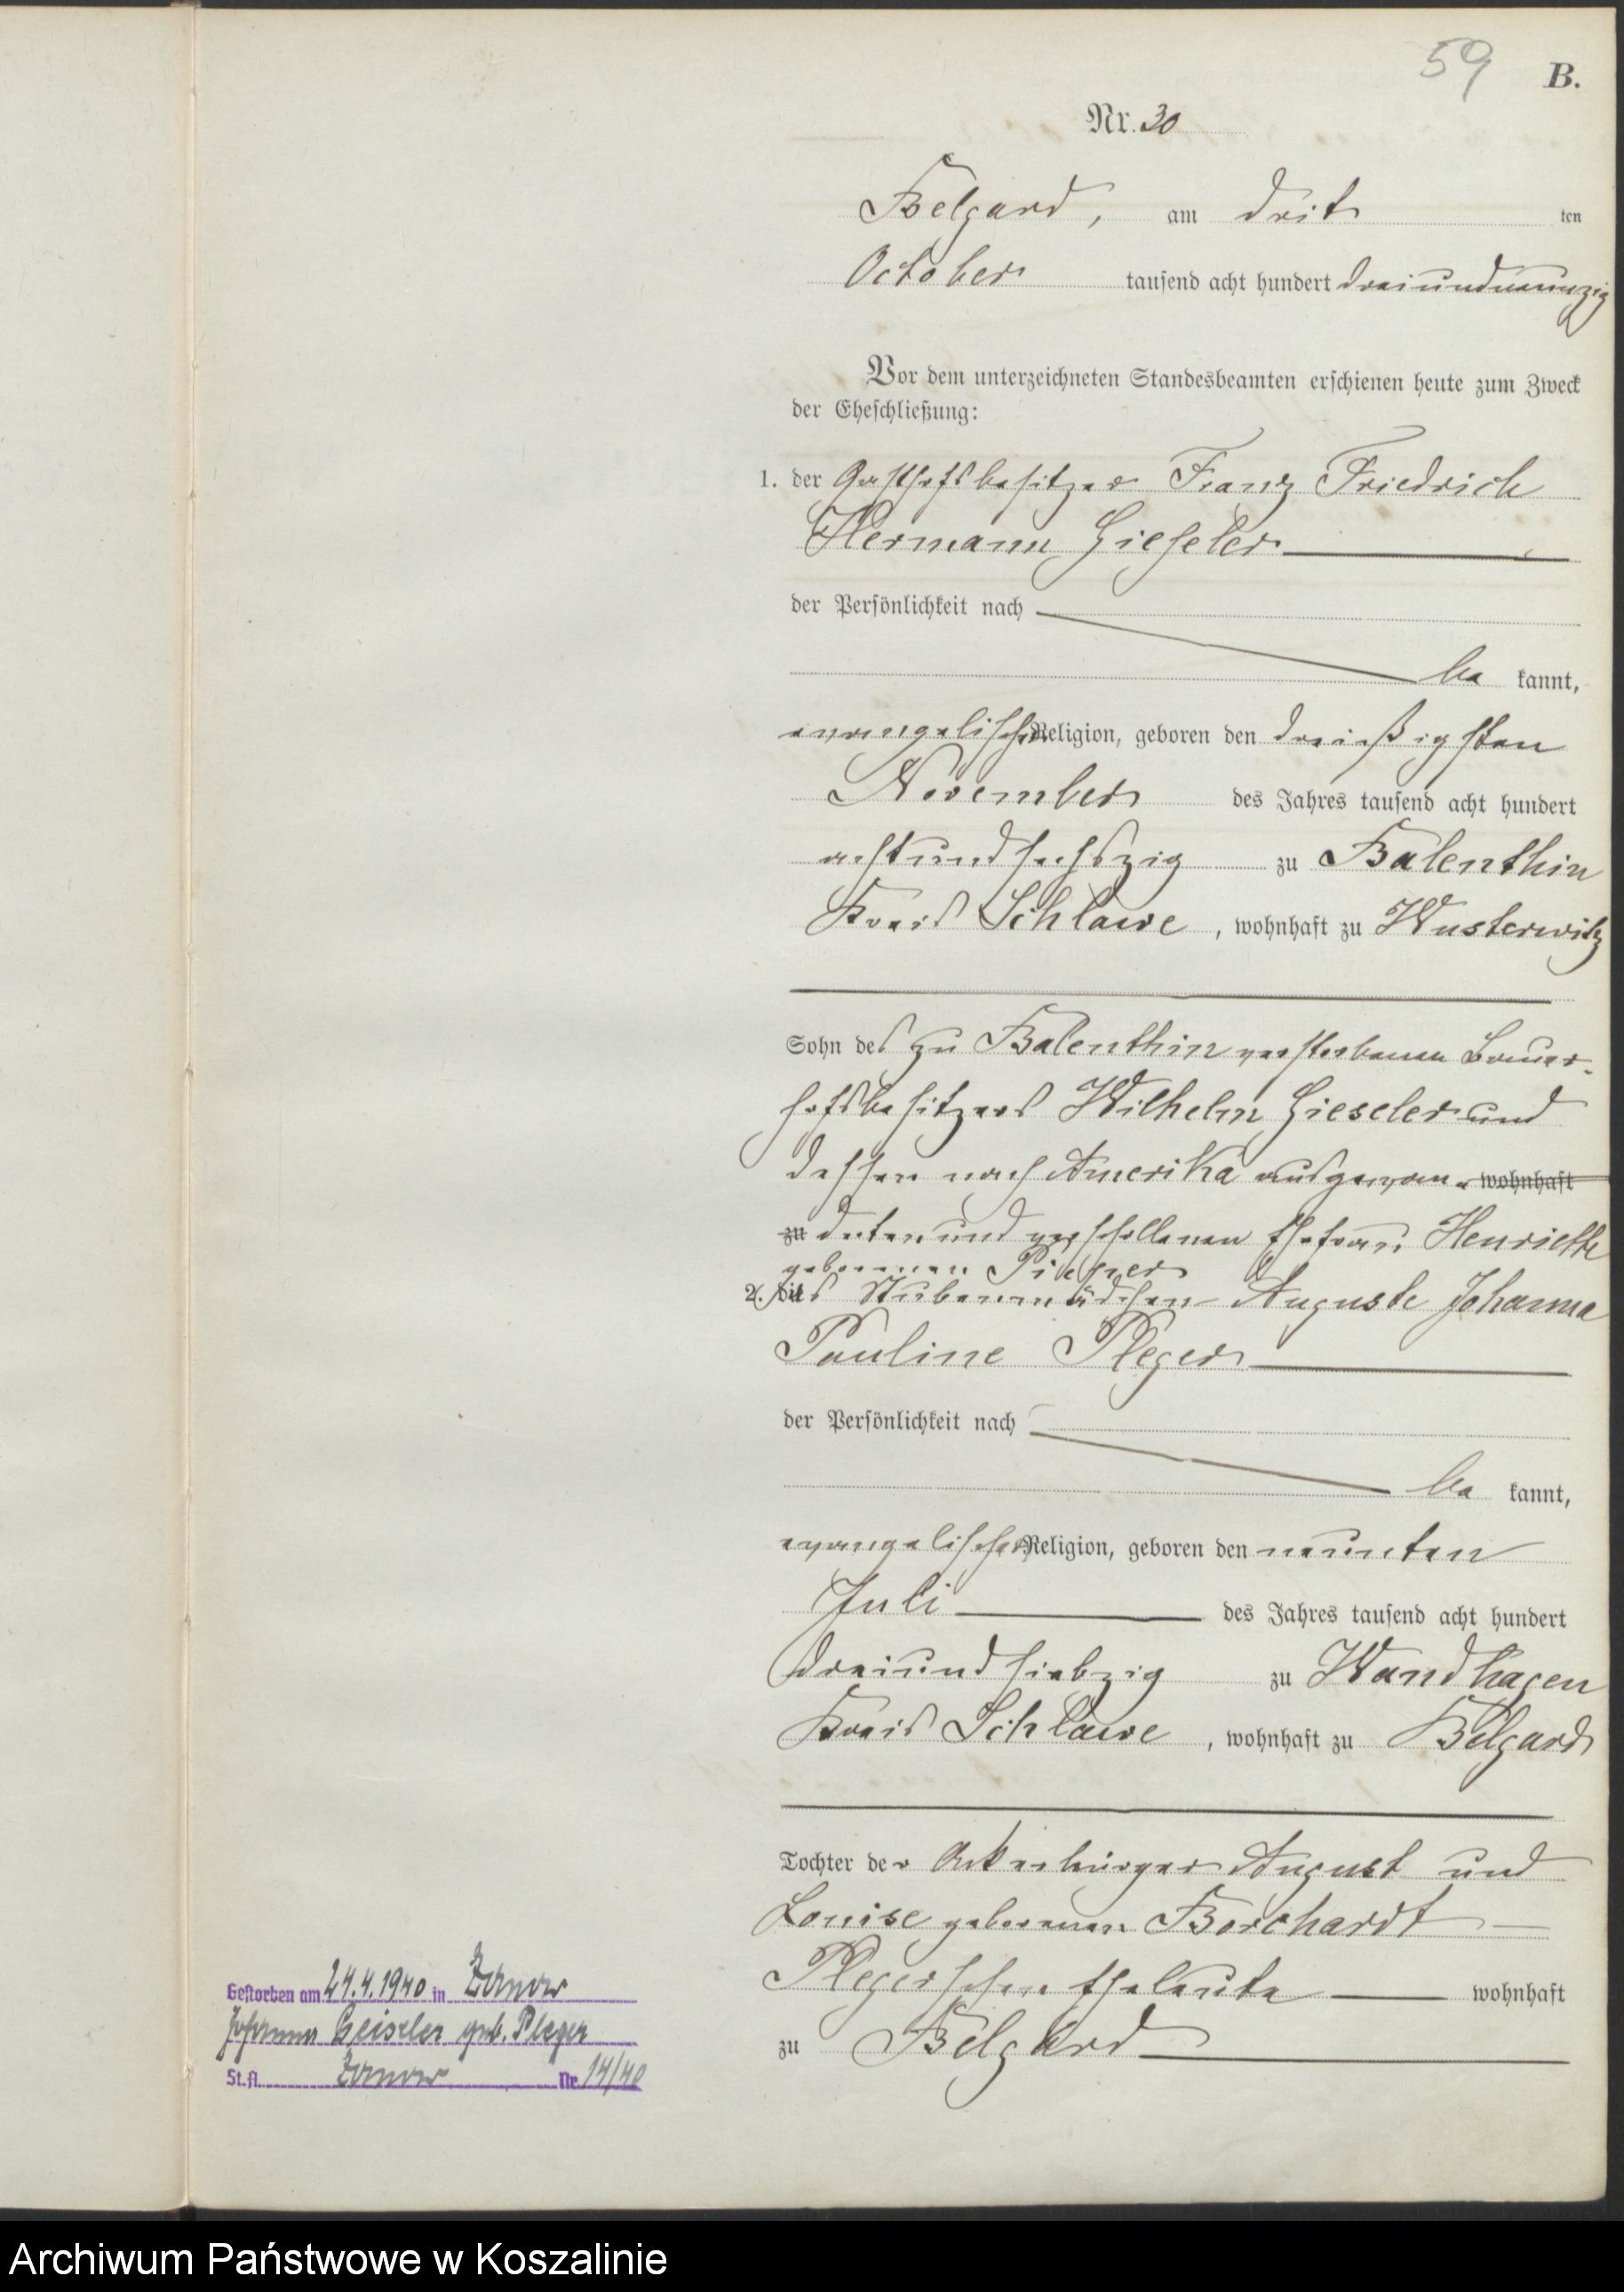 59 B.
Nr. 30
Belgard, am dritten
October tausend acht hundert dreiundneunzig
Vor dem unterzeichneten Standesbeamten erschienen heute zum Zweck
der Eheschließung:
1. der Gasthofsbesitzer Franz Friedrich
Hermann Gieseler
der Persönlichkeit nach
be kannt,
evangelischer Religion, geboren den dreißigsten
November des Jahres tausend acht hundert
achtundsechszig zu Balenthin
Kreis Schlawe, wohnhaft zu Wusterwitz
Sohn des zu Balenthin verstorbenen Bauer-
hofsbesitzers Wilhelm Gieseler und
dessen nach Amerika ausgewan- wohnhaft
zu derten und verschollenen Ehefrau Henriette
geborenen Pieper
2. das Stubenmädchen Auguste Johanna
Pauline Pleger
der Persönlichkeit nach
be kannt,
evangelischer Religion, geboren den neunten
Juli des Jahres tausend acht hundert
dreiundsiebzig zu Wandhagen
Kreis Schlawe, wohnhaft zu Belgard
Tochter der Ackerbürger August und
Louise geborenen Borchardt
Plegerschen Eheleute wohnhaft
zu Belgard
Gestorben am 24.4.1940 in Zanow
Johanna Geiseler geb. Pleger
St.A. Zanow Nr. 14/40
Archiwum Państwowe w Koszalinie